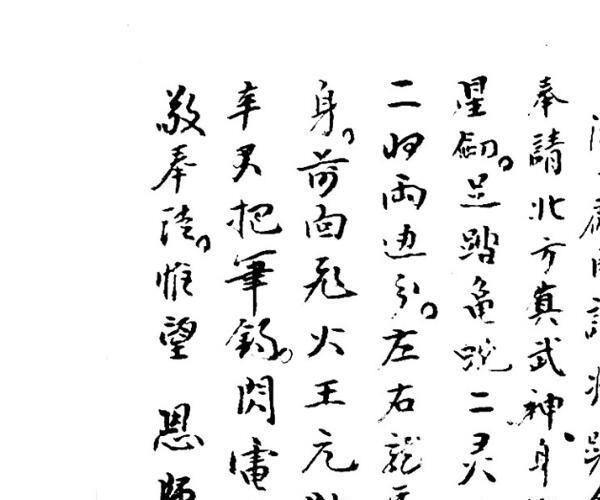 奉請北方真武神、身
星劍。足踏龜蛇二灵
二将兩边分。左右龍
身。前面飛火王元
辛君把筆錄。閃電
敬奉。惟望 恩師